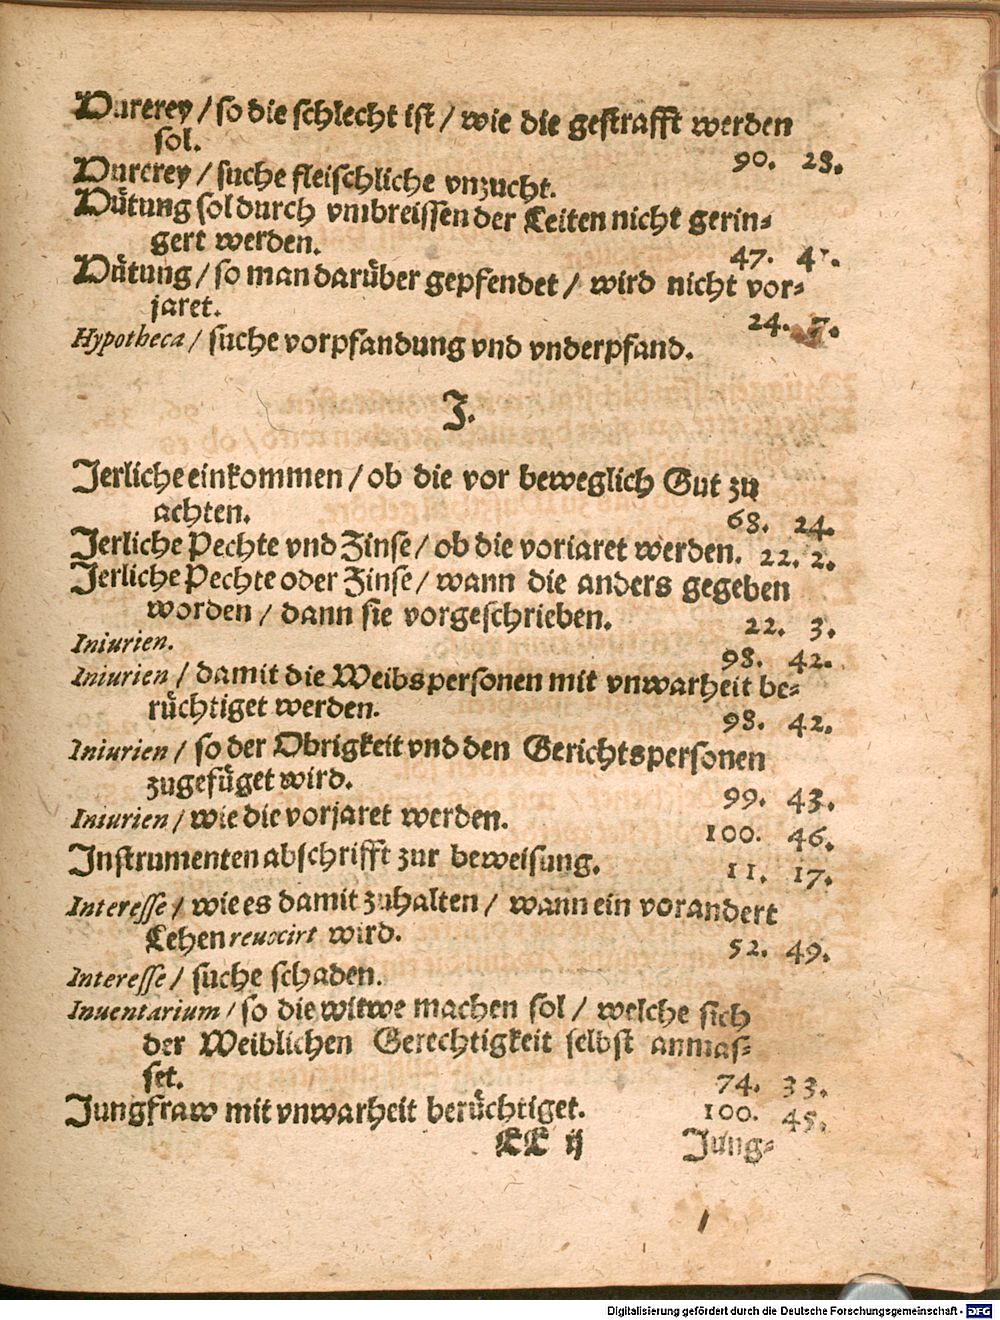 Hurerey / so die schlecht ist / wie die gestrafft werden
sol. 90. 28.
Hurerey / suche fleischliche vnzucht.
Hütung sol durch vmbreissen der Leiten nicht gerin=
gert werden. 47.
Hütung / so man darüber gepfendet / wird nicht vor=
jaret. 24. 7.
Hypotheca / suche vorpfandung vnd vnderpfand.
J.
Jerliche einkommen / ob die vor beweglich Gut zu
achten. 68. 24.
Jerliche Pechte vnd Zinse / ob die voriaret werden. 22. 2.
Jerliche Pechte oder Zinse / wann die anders gegeben
worden / dann sie vorgeschrieben. 22. 3.
Iniurien. 98. 42.
Iniurien / damit die Weibspersonen mit vnwarheit be=
rüchtiget werden. 98. 42.
Iniurien / so der Obrigkeit vnd den Gerichtspersonen
zugefüget wird. 99. 43.
Iniurien / wie die vorjaret werden. 100. 46.
Instrumenten abschrifft zur beweisung. 11. 17.
Interesse / wie es damit zuhalten / wann ein vorandert
Lehen reuocirt wird. 52. 49.
Interesse / suche schaden.
Inuentarium / so die witwe machen sol / welche sich
der Weiblichen Gerechtigkeit selbst anmas=
set. 74. 33.
Jungfraw mit vnwarheit berüchtiget. 100. 45.
LL ij Jung=
Digitalisierung gefördert durch die Deutsche Forschungsgemeinschaft - DFG